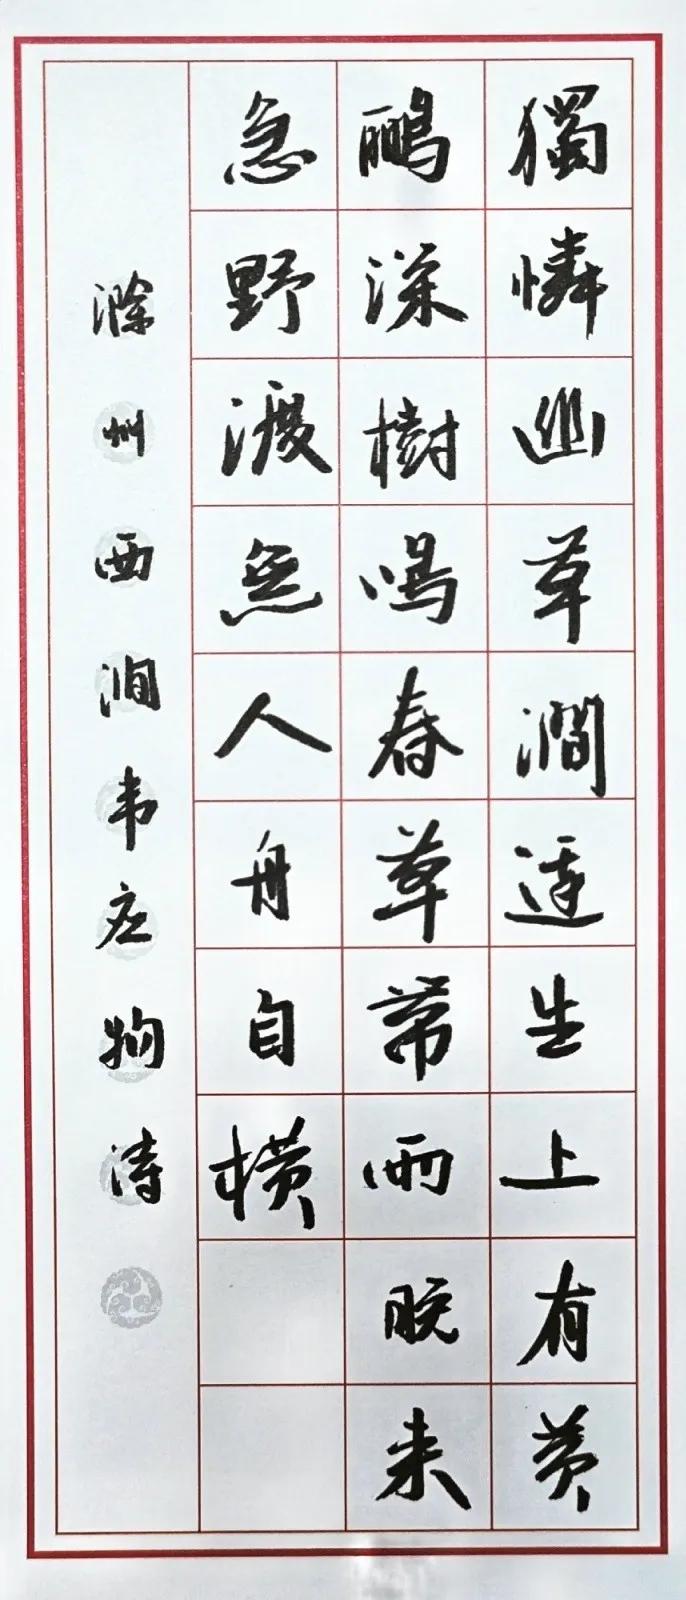 獨憐幽草澗邊生上有黄
鸝深樹鳴春草帶雨晚来
急野渡無人舟自横
滁州西涧韦应物诗